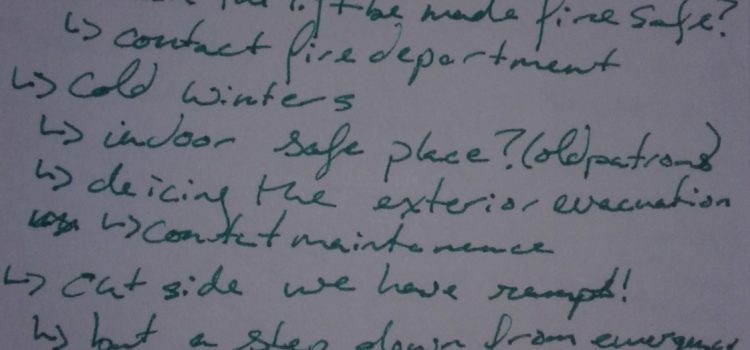 the lift be made fire safe?
↳ contact fire department
↳ cold winters
↳ indoor safe place? (old patrons)
↳ deicing the exterior evacuation
↳ contact maintenance
↳ outside we have ramps!
↳ but a step down from